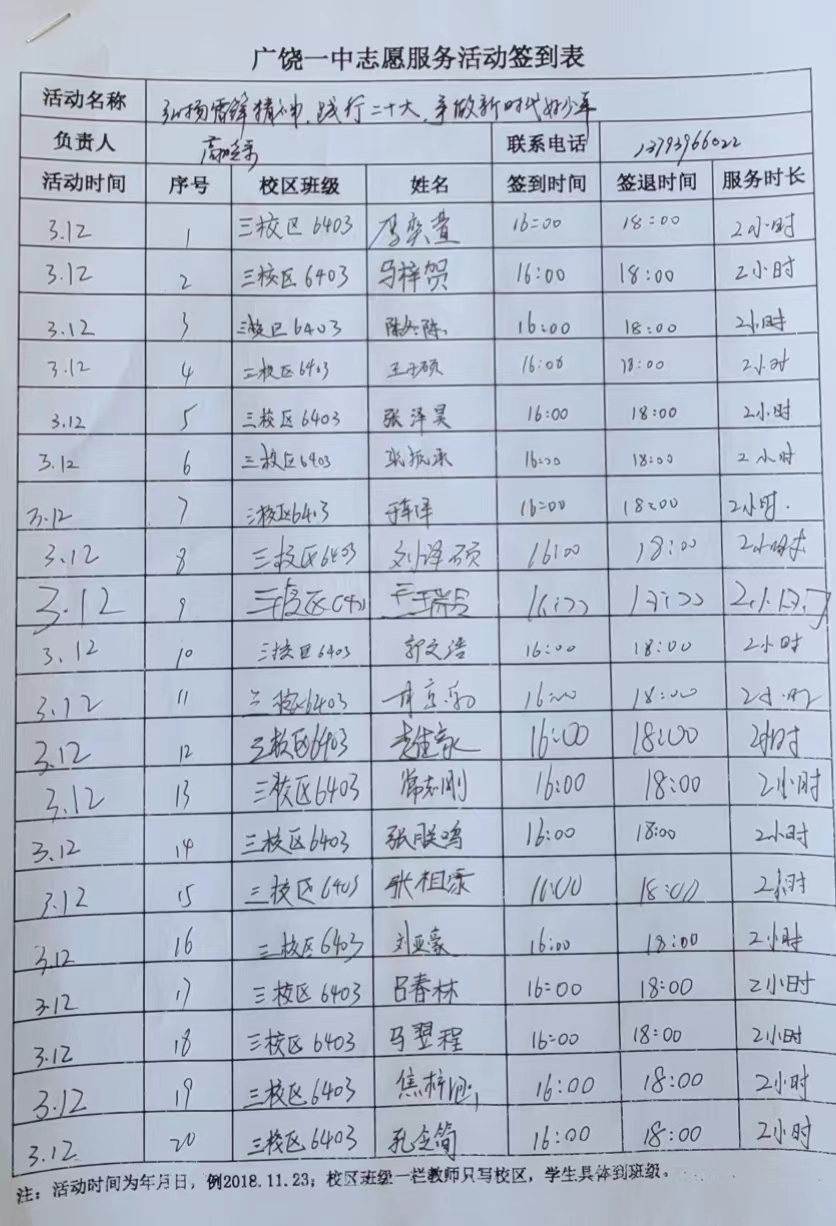 广饶一中志愿服务活动签到表
活动名称 弘扬雷锋精神,践行二十大,争做新时代好少年
负责人 联系电话 13793966022
活动时间 序号 校区班级 姓名 签到时间 签退时间 服务时长
3.12 1 三校区6403 16:00 18:00 2小时
3.12 2 三校区6403 马梓贺 16:00 18:00 2小时
3.12 3 三校区6403 16:00 18:00 2小时
3.12 4 三校区6403 王子硕 16:00 18:00 2小时
3.12 5 三校区6403 张泽昊 16:00 18:00 2小时
3.12 6 三校区6403 16:00 18:00 2小时
3.12 7 三校区6403 16:00 18:00 2小时.
3.12 8 三校区6403 刘泽硕 16:00 18:00 2小时
3.12 9 三校区 2小时
3.12 10 三校区6403 郭文浩 16:00 18:00 2小时
3.12 11 三校区6403 16:00 18:00 2小时
3.12 12 三校区6403 16:00 18:00 2小时
3.12 13 三校区6403 常志刚 16:00 18:00 2小时
3.12 14 三校区6403 张朕鸣 16:00 18:00 2小时
3.12 15 三校区6403 16:00 18:00 2小时
3.12 16 三校区6403 刘亚豪 16:00 18:00 2小时
3.12 17 三校区6403 吕春林 16:00 18:00 2小时
3.12 18 三校区6403 马翌程 16:00 18:00 2小时
3.12 19 三校区6403 16:00 18:00 2小时
3.12 20 三校区6403 孔令简 16:00 18:00 2小时
注:活动时间为年月日,例2018.11.23;校区班级一栏教师只写校区,学生具体到班级。